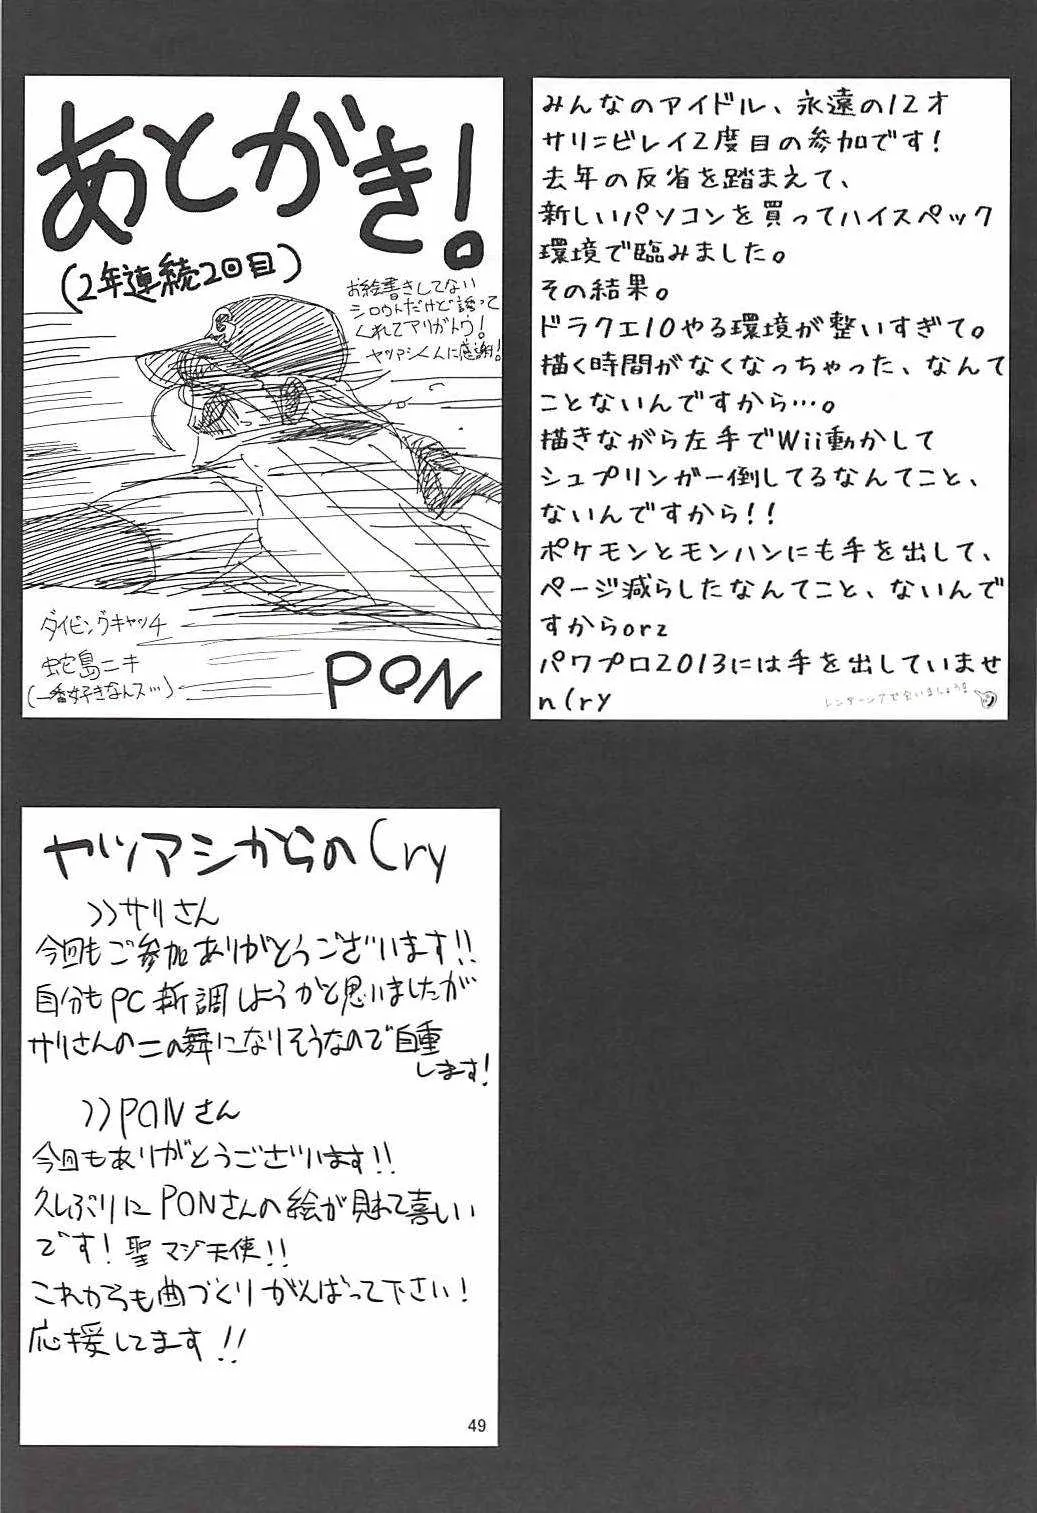 あとがき!
(2年連続2回目)
お絵書きしてない
シロウトだけど誘って
くれてアリガトウ!
ヤツアシくんに感謝!
ダイビングキャッチ
蛇島ニキ
(一番好きなんス…)
PON
みんなのアイドル、永遠の12才
サリ=ビレイ2度目の参加です!
去年の反省を踏まえて、
新しいパソコンを買ってハイスペック
環境で臨みました。
その結果。
ドラクエ10やる環境が整いすぎて。
描く時間がなくなっちゃった、なんて
ことないんですから…。
描きながら左手でWii動かして
シュプリンガー倒してるなんてこと、
ないんですから!!
ポケモンとモンハンにも手を出して、
ページ減らしたなんてこと、ないんで
すからorz
パワプロ2013には手を出していませ
n(ry
レンダーシアで会いましょうま
ヤツアシからの(ry
>>サリさん
今回もご参加ありがとうございます!!
自分もPC新調しようかと思いましたが
サリさんの二の舞になりそうなので自重
します!
>>PONさん
今回もありがとうございます!!
久しぶりにPONさんの絵が見れて喜しい
です!聖マジ天使!!
これからも曲づくりがんばって下さい!
応援してます!!
49